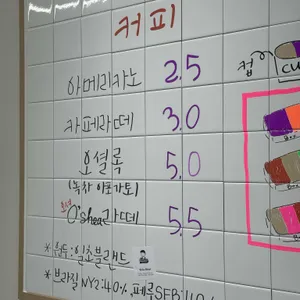 커피
아메리카노 2.5
카페라떼 3.0
오셜록 5.0
(녹차 아포가토)
O'shea라떼 5.5
컵
CU
* 원두: 일호블랜드
* 브라질NY2:40%, 페루SFB:40%